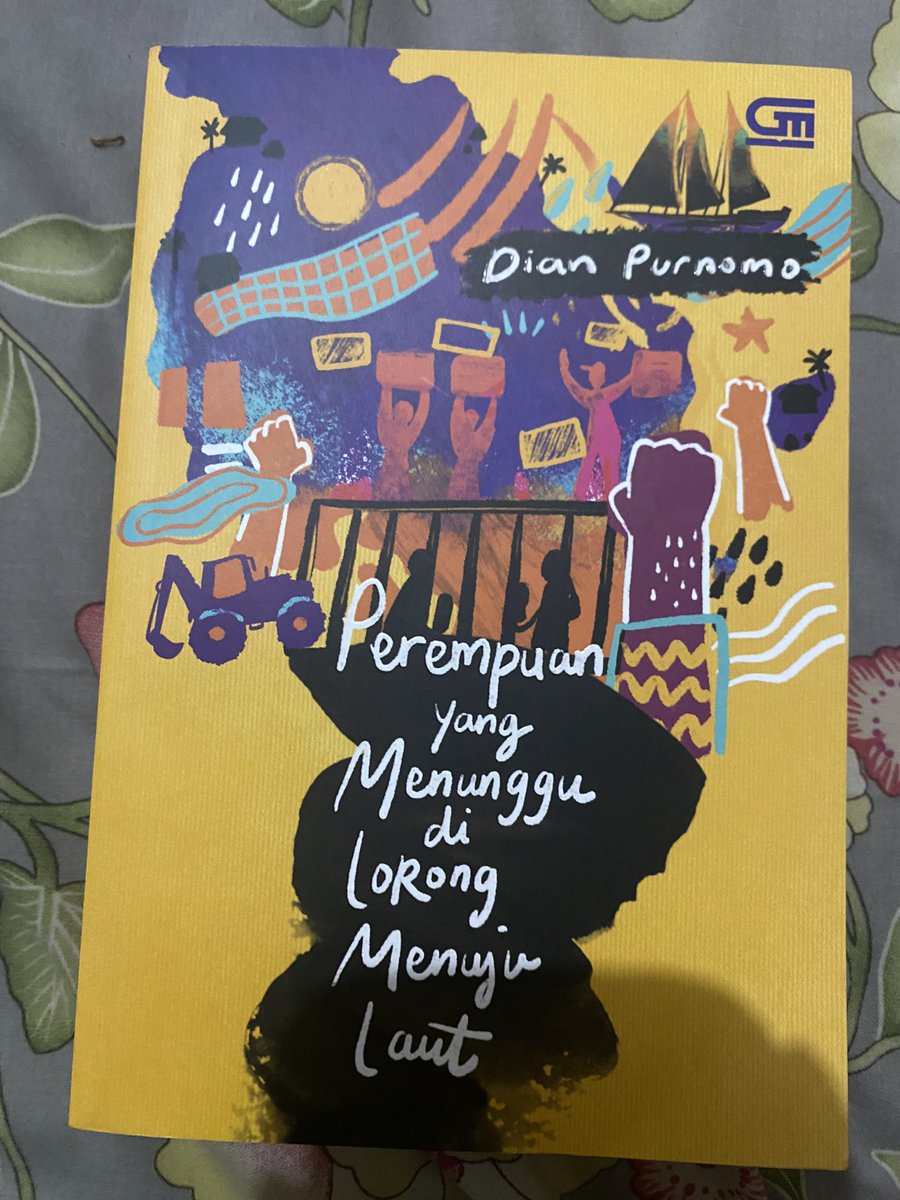 Dian Purnomo
Perempuan
yang
Menunggu
di
Lorong
Menuju
Laut